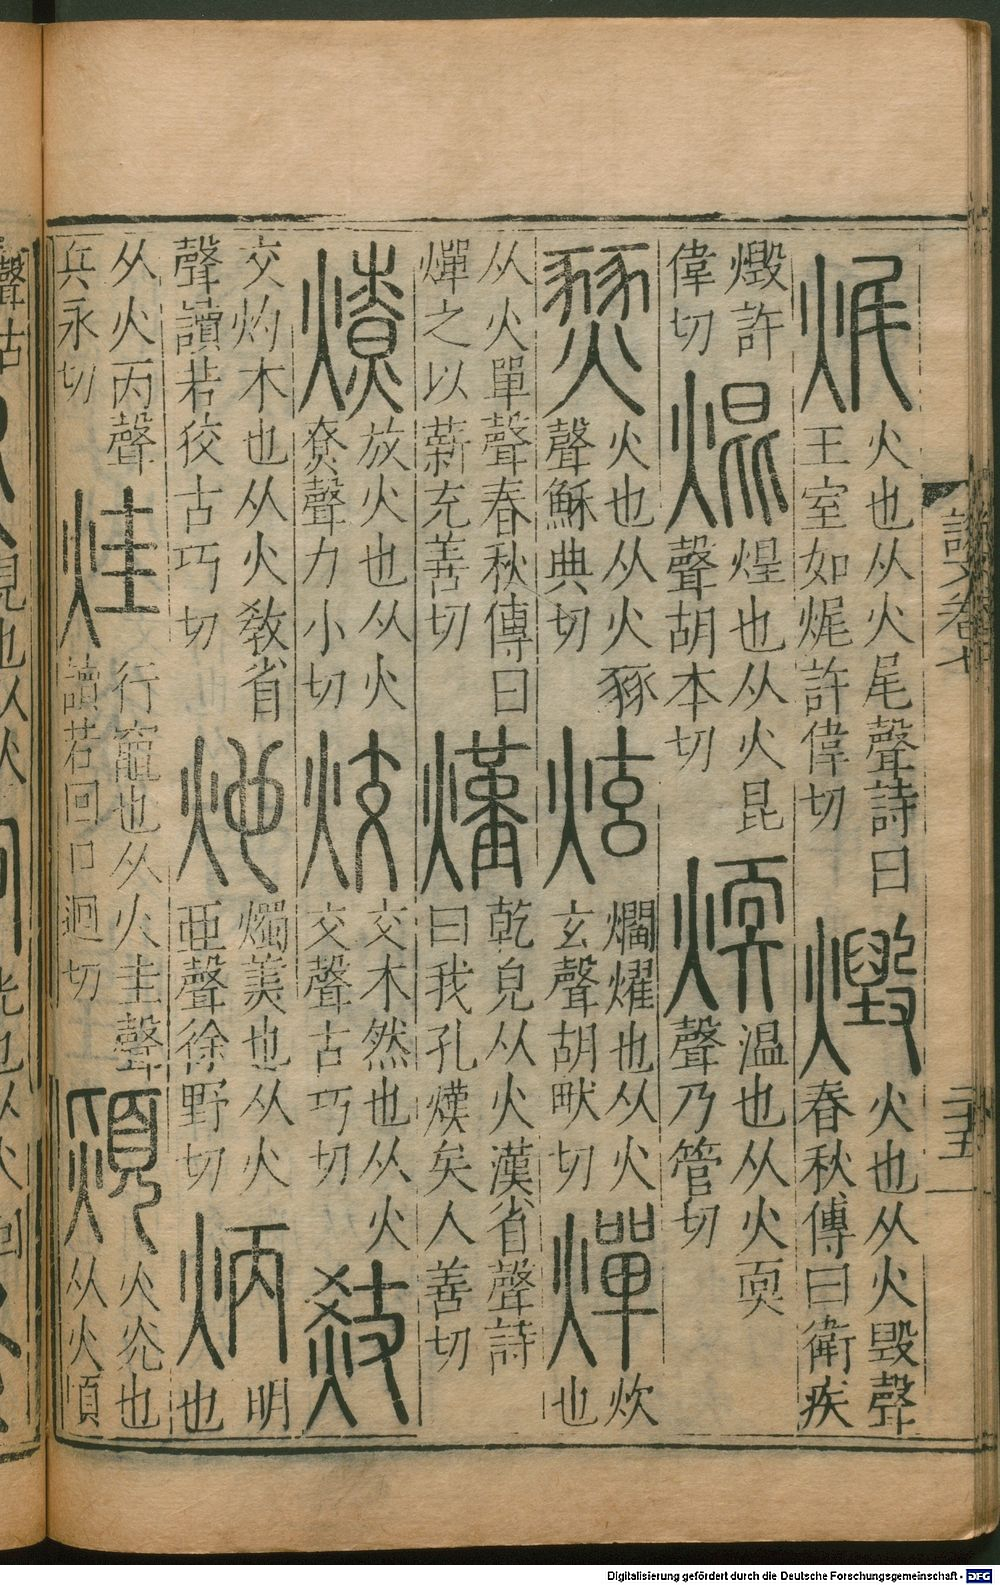 𤈦
火也从火尾聲詩曰
王室如𤈦許偉切
燬
火也从火毀聲
春秋傳曰衛疾
燬許
偉切
焜
煌也从火昆
聲胡本切
煗
温也从火耎
聲乃管切
燹
火也从火豩
聲穌典切
炫
爓燿也从火
玄聲胡畎切
燀
炊
也
从火單聲春秋傳曰
燀之以薪充善切
熯
乾皃从火漢省聲詩
曰我孔熯矣人善切
燎
放火也从火
尞聲力小切
烄
交木然也从火
交聲古巧切
交灼木也从火敎省
聲讀若狡古巧切
灺
燭美也从火
亜聲徐野切
炳
明
也
从火丙聲
兵永切
烓
行竈也从火圭聲
讀若回口迴切
熲
火炗也
从火頃
說文卷七
二十五
Digitalisierung gefördert durch die Deutsche Forschungsgemeinschaft - DFG